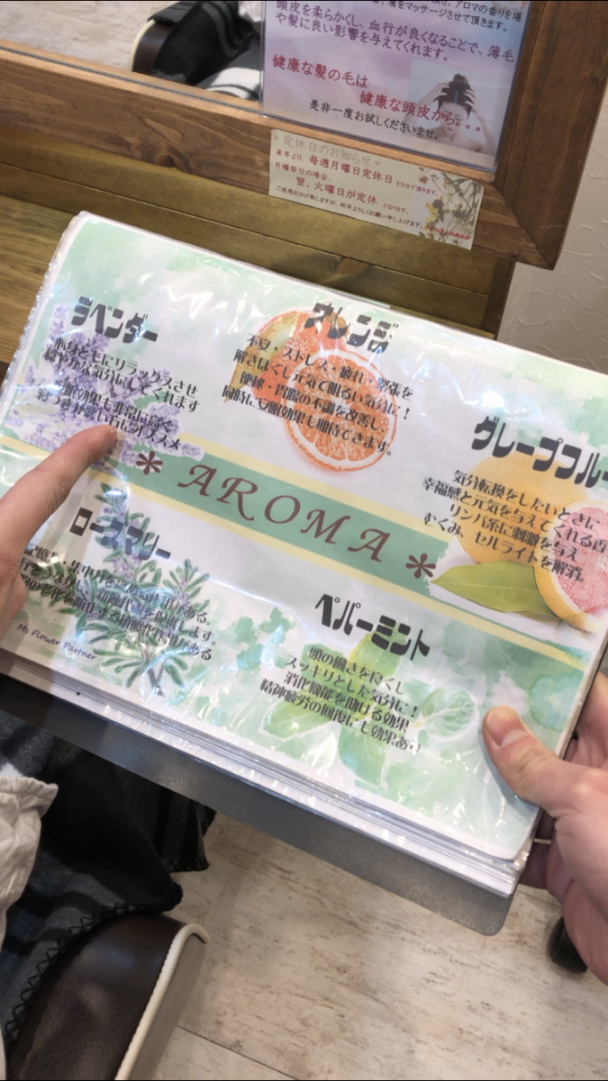 アロマの香りを堪
をマッサージさせて頂きます。
頭皮を柔らかくし、血行が良くなることで、薄毛
や髪に良い影響を与えてくれます。
健康な髪の毛は
健康な頭皮から・・・
是非一度お試しくださいませ。
定休日のお知らせ
来年より、毎週月曜日定休日とさせて頂きます。
月曜祭日の場合、
翌、火曜日が定休となります。
ご迷惑おかけ致しますが、何卒よろしくお願い申し上げます。
ラベンダー
心身ともにリラックスさせ
穏やかな気分にしてくれます
オレンジ
不安・ストレス・疲れ・緊張を
解きほぐし元気で明るい気分に!
便秘・胃腸の不調を改善し
同時に安眠効果も期待できます。
グレープフルー
気分転換をしたいときに
幸福感と元気を与えてくれる香
リンパ系に刺激を与え
むくみ、セルライトを解消。
* AROMA *
ローズマリー
ペパーミント
頭の働きを良くし
スッキリとした気分に!
消化機能を助ける効果
精神疲労の回復にも効果あり
My Flower Partner